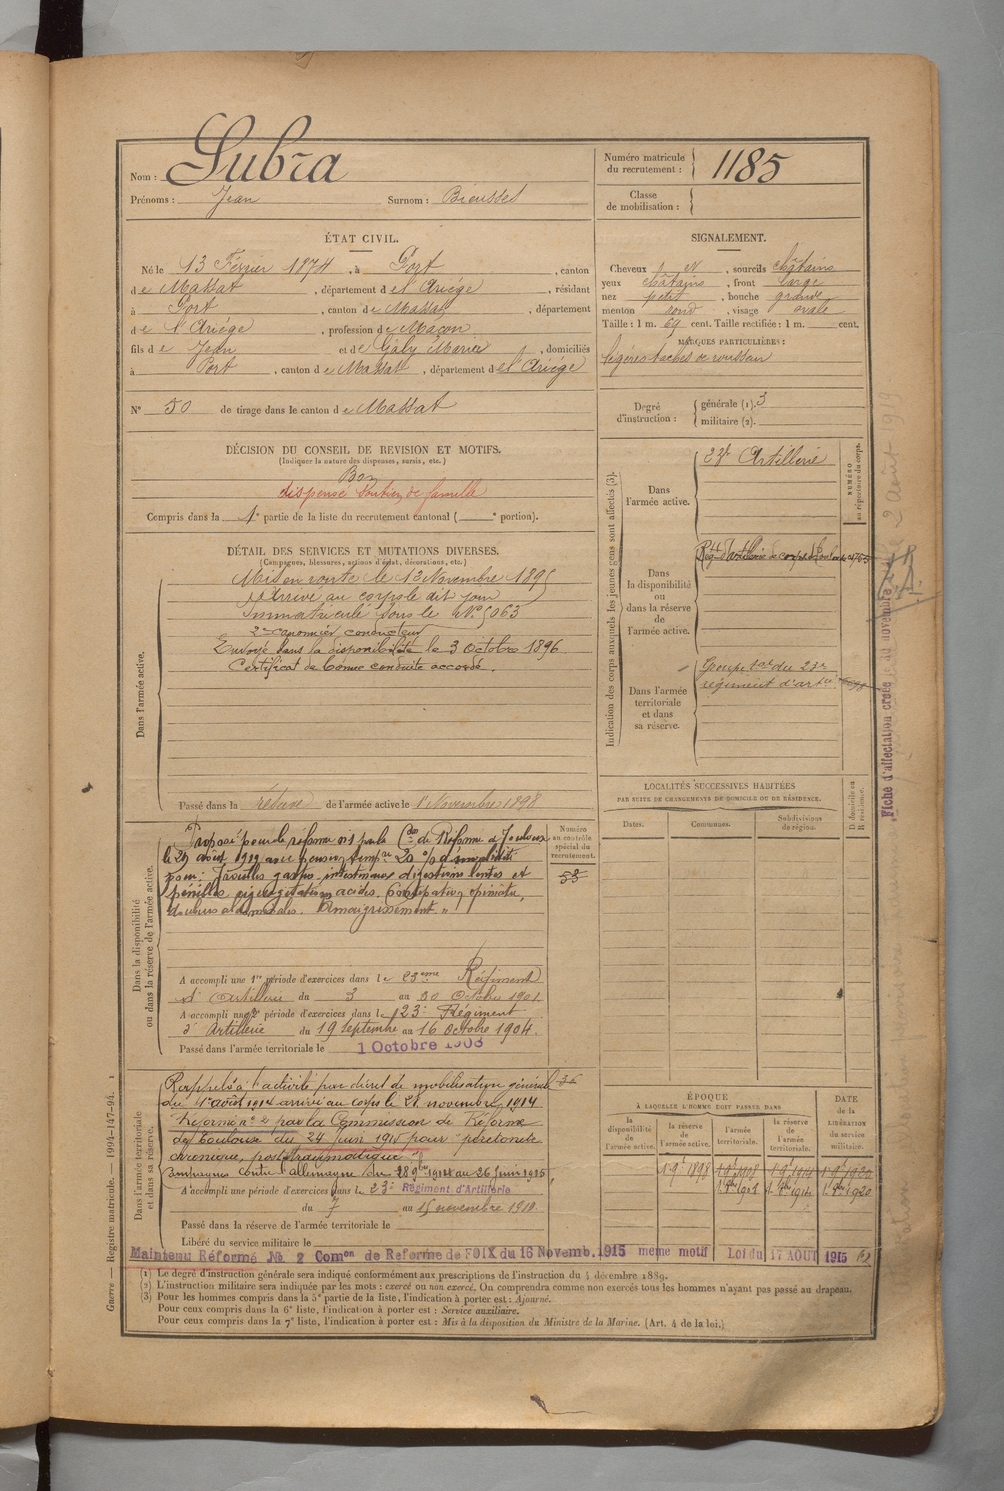 Nom : Subra
Prénoms : Jean Surnom : Bieusset
Numéro matricule du recrutement : 1185
Classe de mobilisation :
ÉTAT CIVIL.
Né le 13 Février 1874, à Port, canton
de Massat, département de l'Ariége, résidant
à Port, canton de Massat, département
de l'Ariége, profession de Maçon
fils de Jean et de Galy Marie, domiciliés
à Port, canton de Massat, département de l'Ariége
N° 50 de tirage dans le canton de Massat
SIGNALEMENT.
Cheveux N, sourcils châtains
yeux châtains, front large
nez petit, bouche grande
menton rond, visage ovale
Taille : 1 m. 69 cent. Taille rectifiée : 1 m. cent.
MARQUES PARTICULIÈRES :
légères taches de rousseur
Degré d'instruction : générale (1). 3
militaire (2).
DÉCISION DU CONSEIL DE REVISION ET MOTIFS.
(Indiquer la nature des dispenses, sursis, etc.)
Bon
dispensé Soutien de famille
Compris dans la 1e partie de la liste du recrutement cantonal ( e portion).
DÉTAIL DES SERVICES ET MUTATIONS DIVERSES.
(Campagnes, blessures, actions d'éclat, décorations, etc.)
Dans l'armée active.
Mis en route le 13 Novembre 1895
Arrivé au corps le dit jour
Immatriculé sous le N° 5063
2e canonnier conducteur
Envoyé dans la disponibilité le 3 Octobre 1896
Certificat de bonne conduite accordé.
Passé dans la réserve de l'armée active le 1 Novembre 1898
Indication des corps auxquels les jeunes gens sont affectés (3).
Dans l'armée active.
23e Artillerie
NUMÉRO au répertoire du corps.
Dans la disponibilité ou dans la réserve de l'armée active.
Dans l'armée territoriale et dans sa réserve.
Groupe du 23e
régiment d'artie
Fiche d'affectation créée
LOCALITÉS SUCCESSIVES HABITÉES
PAR SUITE DE CHANGEMENTS DE DOMICILE OU DE RÉSIDENCE.
Dates. Communes. Subdivisions de région. D domicile ou R résidence.
Dans la disponibilité ou dans la réserve de l'armée active.
Numéro au contrôle spécial du recrutement.
58
Proposé pour la réforme n°1 par la Con de Réforme de Toulouse
le 29 août 1919 avec pension tempre 20 % d'invalidité
pour : Troubles gastro intestinaux digestions lentes et
pénibles régurgitations acides. Constipation opiniâtre,
douleurs abdominales. Amaigrissement. "
A accompli une 1re période d'exercices dans le 23eme Régiment
d'Artillerie du 3 au 30 Octobre 1901
A accompli une 2e période d'exercices dans le 23e Régiment
d'Artillerie du 19 septembre au 16 octobre 1904.
Passé dans l'armée territoriale le 1 Octobre 1908
Dans l'armée territoriale et dans sa réserve.
Rappelé à l'activité par décret de mobilisation générale
du 1er août 1914 arrivé au corps le 28 novembre 1914
Réformé n° 2 par la Commission de Réforme
de Toulouse du 24 Juin 1915 pour "péritonite
chronique, post traumatique"
Campagnes contre l'allemagne du 28 9bre 1914 au 26 Juin 1915
A accompli une période d'exercices dans le 23e Régiment d'Artillerie
du 7 au 15 novembre 1910.
Passé dans la réserve de l'armée territoriale le
Libéré du service militaire le
Maintenu Réformé N° 2 Comon de Réforme de FOIX du 16 Novemb. 1915 même motif Loi du 17 AOUT 1915
ÉPOQUE
À LAQUELLE L'HOMME DOIT PASSER DANS
la disponibilité de l'armée active. la réserve de l'armée active. l'armée territoriale. la réserve de l'armée territoriale.
DATE de la LIBÉRATION du service militaire.
1 9e 1898 1 9e 1908 1 9e 1914 1 9e 1920
(1) Le degré d'instruction générale sera indiqué conformément aux prescriptions de l'instruction du 4 décembre 1889.
(2) L'instruction militaire sera indiquée par les mots : exercé ou non exercé. On comprendra comme non exercés tous les hommes n'ayant pas passé au drapeau.
(3) Pour les hommes compris dans la 5e partie de la liste, l'indication à porter est : Ajourné.
Pour ceux compris dans la 6e liste, l'indication à porter est : Service auxiliaire.
Pour ceux compris dans la 7e liste, l'indication à porter est : Mis à la disposition du Ministre de la Marine. (Art. 4 de la loi.)
Guerre — Registre matricule. — 1994-147-94.